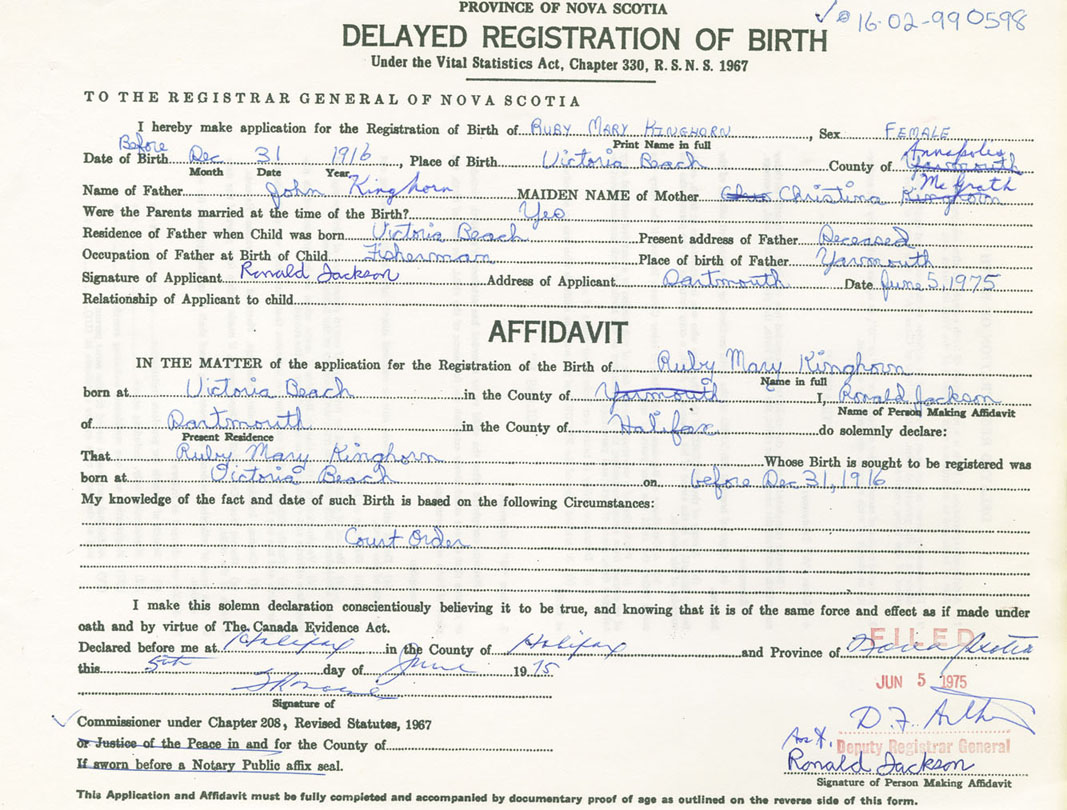 PROVINCE OF NOVA SCOTIA
16-02-990598
DELAYED REGISTRATION OF BIRTH
Under the Vital Statistics Act, Chapter 330, R. S. N. S. 1967
TO THE REGISTRAR GENERAL OF NOVA SCOTIA
I hereby make application for the Registration of Birth of RUBY MARY KINGHORN, Sex FEMALE
Print Name in full
Before Annapolis
Date of Birth Dec 31 1916, Place of Birth Victoria Beach County of Yarmouth
Month Date Year
McGrath
Name of Father John Kinghorn MAIDEN NAME of Mother Christina Kinghorn
Were the Parents married at the time of the Birth? Yes
Residence of Father when Child was born Victoria Beach Present address of Father Deceased
Occupation of Father at Birth of Child Fisherman Place of birth of Father Yarmouth
Signature of Applicant Ronald Jackson Address of Applicant Dartmouth Date June 5, 1975
Relationship of Applicant to child
AFFIDAVIT
IN THE MATTER of the application for the Registration of the Birth of Ruby Mary Kinghorn
Name in full
born at Victoria Beach in the County of Yarmouth I, Ronald Jackson
Name of Person Making Affidavit
of Dartmouth in the County of Halifax do solemnly declare:
Present Residence
That Ruby Mary Kinghorn Whose Birth is sought to be registered was
born at Victoria Beach on before Dec 31, 1916
My knowledge of the fact and date of such Birth is based on the following Circumstances:
Court Order
I make this solemn declaration conscientiously believing it to be true, and knowing that it is of the same force and effect as if made under
oath and by virtue of The Canada Evidence Act.
FILED
Declared before me at Halifax in the County of Halifax and Province of Nova Scotia
this 5th day of June 1975
JUN 5 1975
Signature of
Commissioner under Chapter 208, Revised Statutes, 1967
or Justice of the Peace in and for the County of
Deputy Registrar General
If sworn before a Notary Public affix seal.
Ronald Jackson
Signature of Person Making Affidavit
This Application and Affidavit must be fully completed and accompanied by documentary proof of age as outlined on the reverse side of this form.